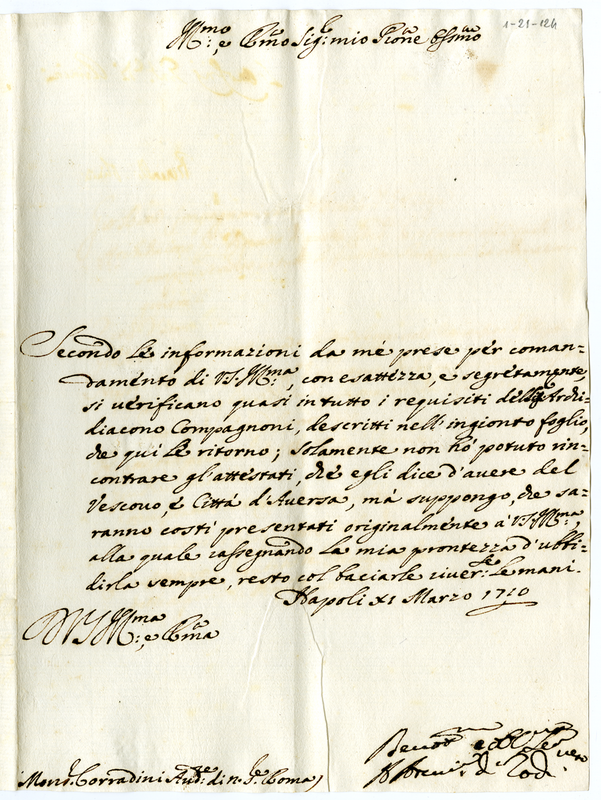 1-21-124
Ill.mo e R.mo Sig.r mio P.rone
Secondo le informazioni da mé prese pér coman=
daménto di V.S. Ill.ma, con esattézza, e segrétaménte,
si vérificano quasi in tutto i requisiti dell' Archi
diacono Compagnoni, descritti nell' ingionto foglio,
che qui Lé ritorno; solamente non hó potuto rin=
contrare gl'attéstati, ché égli dice d'avere del
Vescovo, é Cittá d'Aversa, má suppongo, che sa=
ranno costi presentati originalménte á V.S. Ill.ma,
alla quale rassegnando la mia prontezza d'ubbi=
dirla sempre, resto col baciarle river.te le mani.
Napoli XI Marzo 1710
D V.S. Ill.ma e R.ma
Mons.r Corradini Aud.re di n. S.re Roma